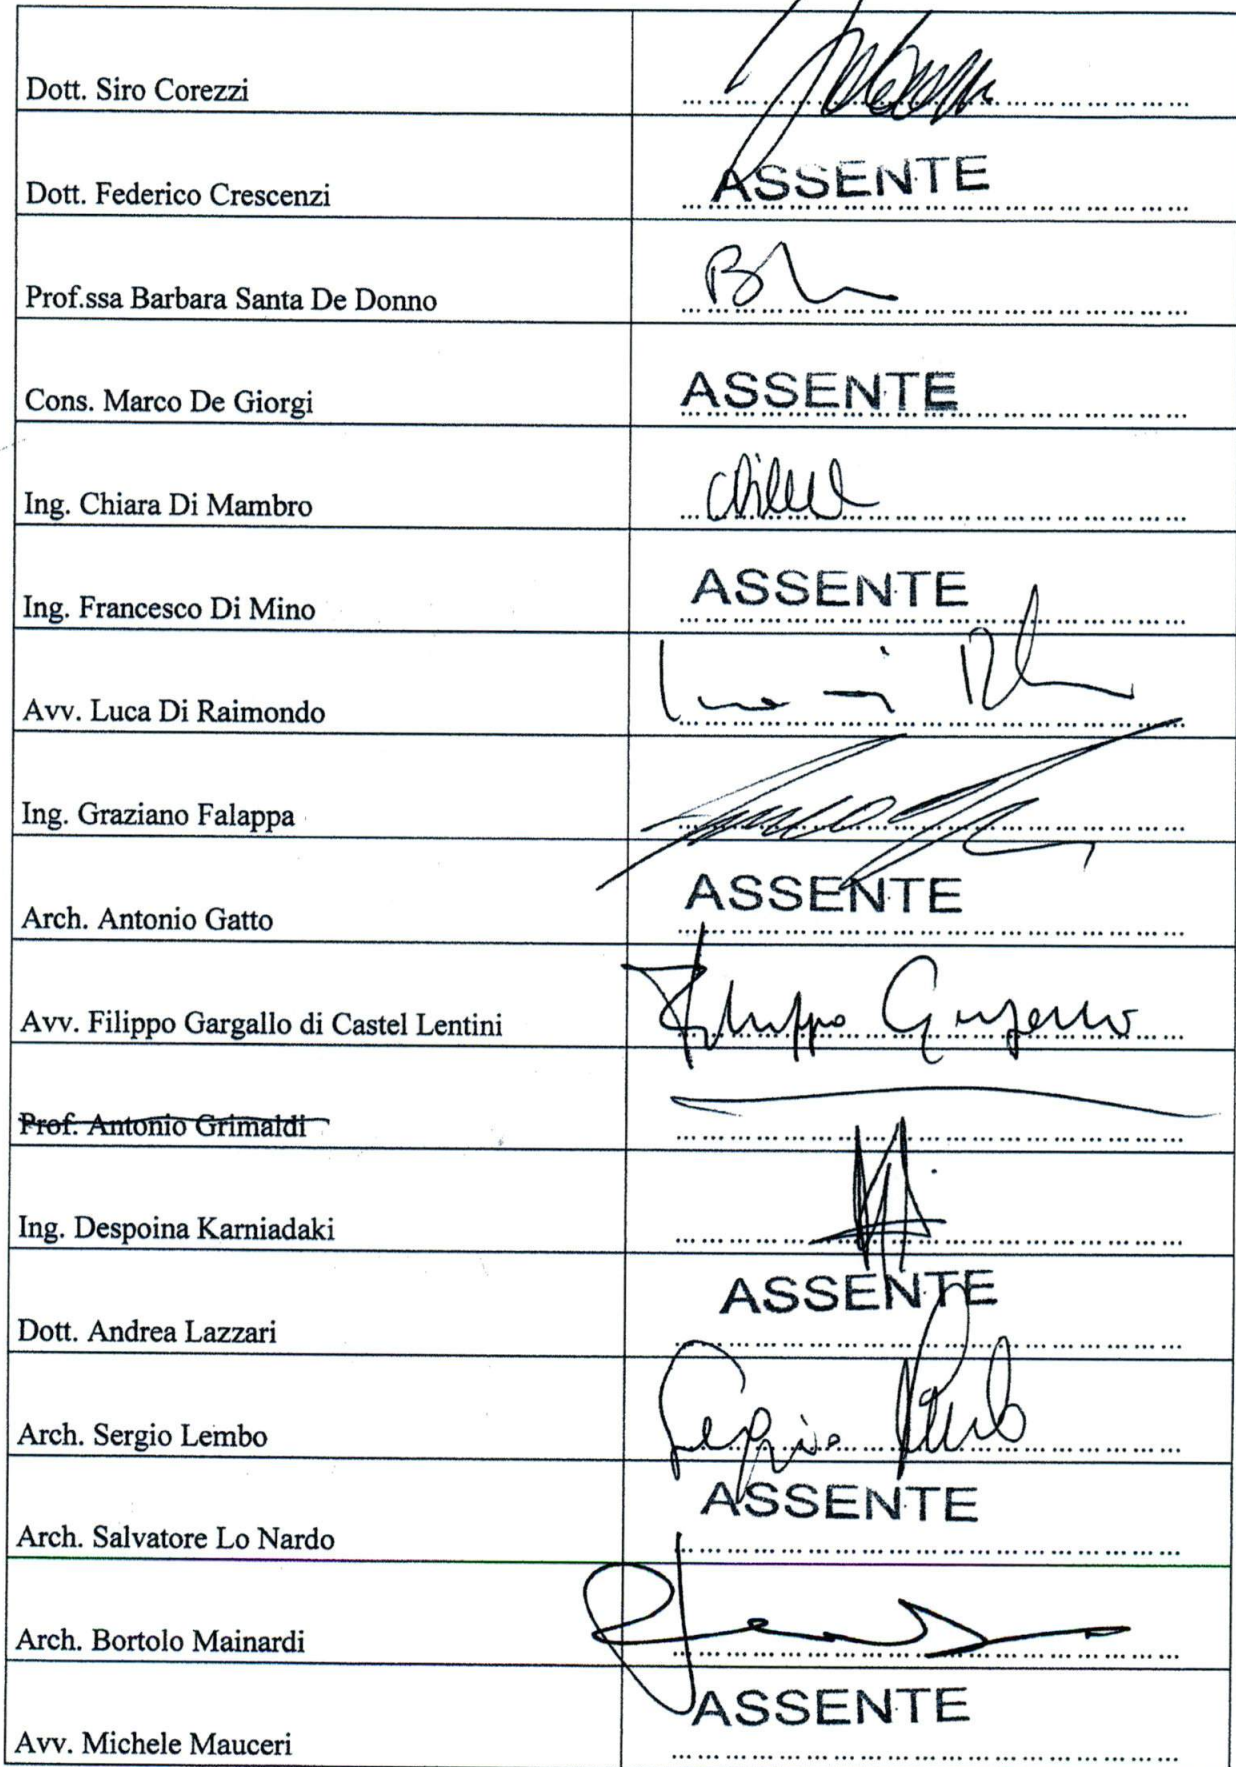 Dott. Siro Corezzi
Dott. Federico Crescenzi ASSENTE
Prof.ssa Barbara Santa De Donno
Cons. Marco De Giorgi ASSENTE
Ing. Chiara Di Mambro
Ing. Francesco Di Mino ASSENTE
Avv. Luca Di Raimondo
Ing. Graziano Falappa
Arch. Antonio Gatto ASSENTE
Avv. Filippo Gargallo di Castel Lentini Filippo Gargallo
Prof. Antonio Grimaldi
Ing. Despoina Karniadaki
Dott. Andrea Lazzari ASSENTE
Arch. Sergio Lembo Sergio Lembo
Arch. Salvatore Lo Nardo ASSENTE
Arch. Bortolo Mainardi
Avv. Michele Mauceri ASSENTE